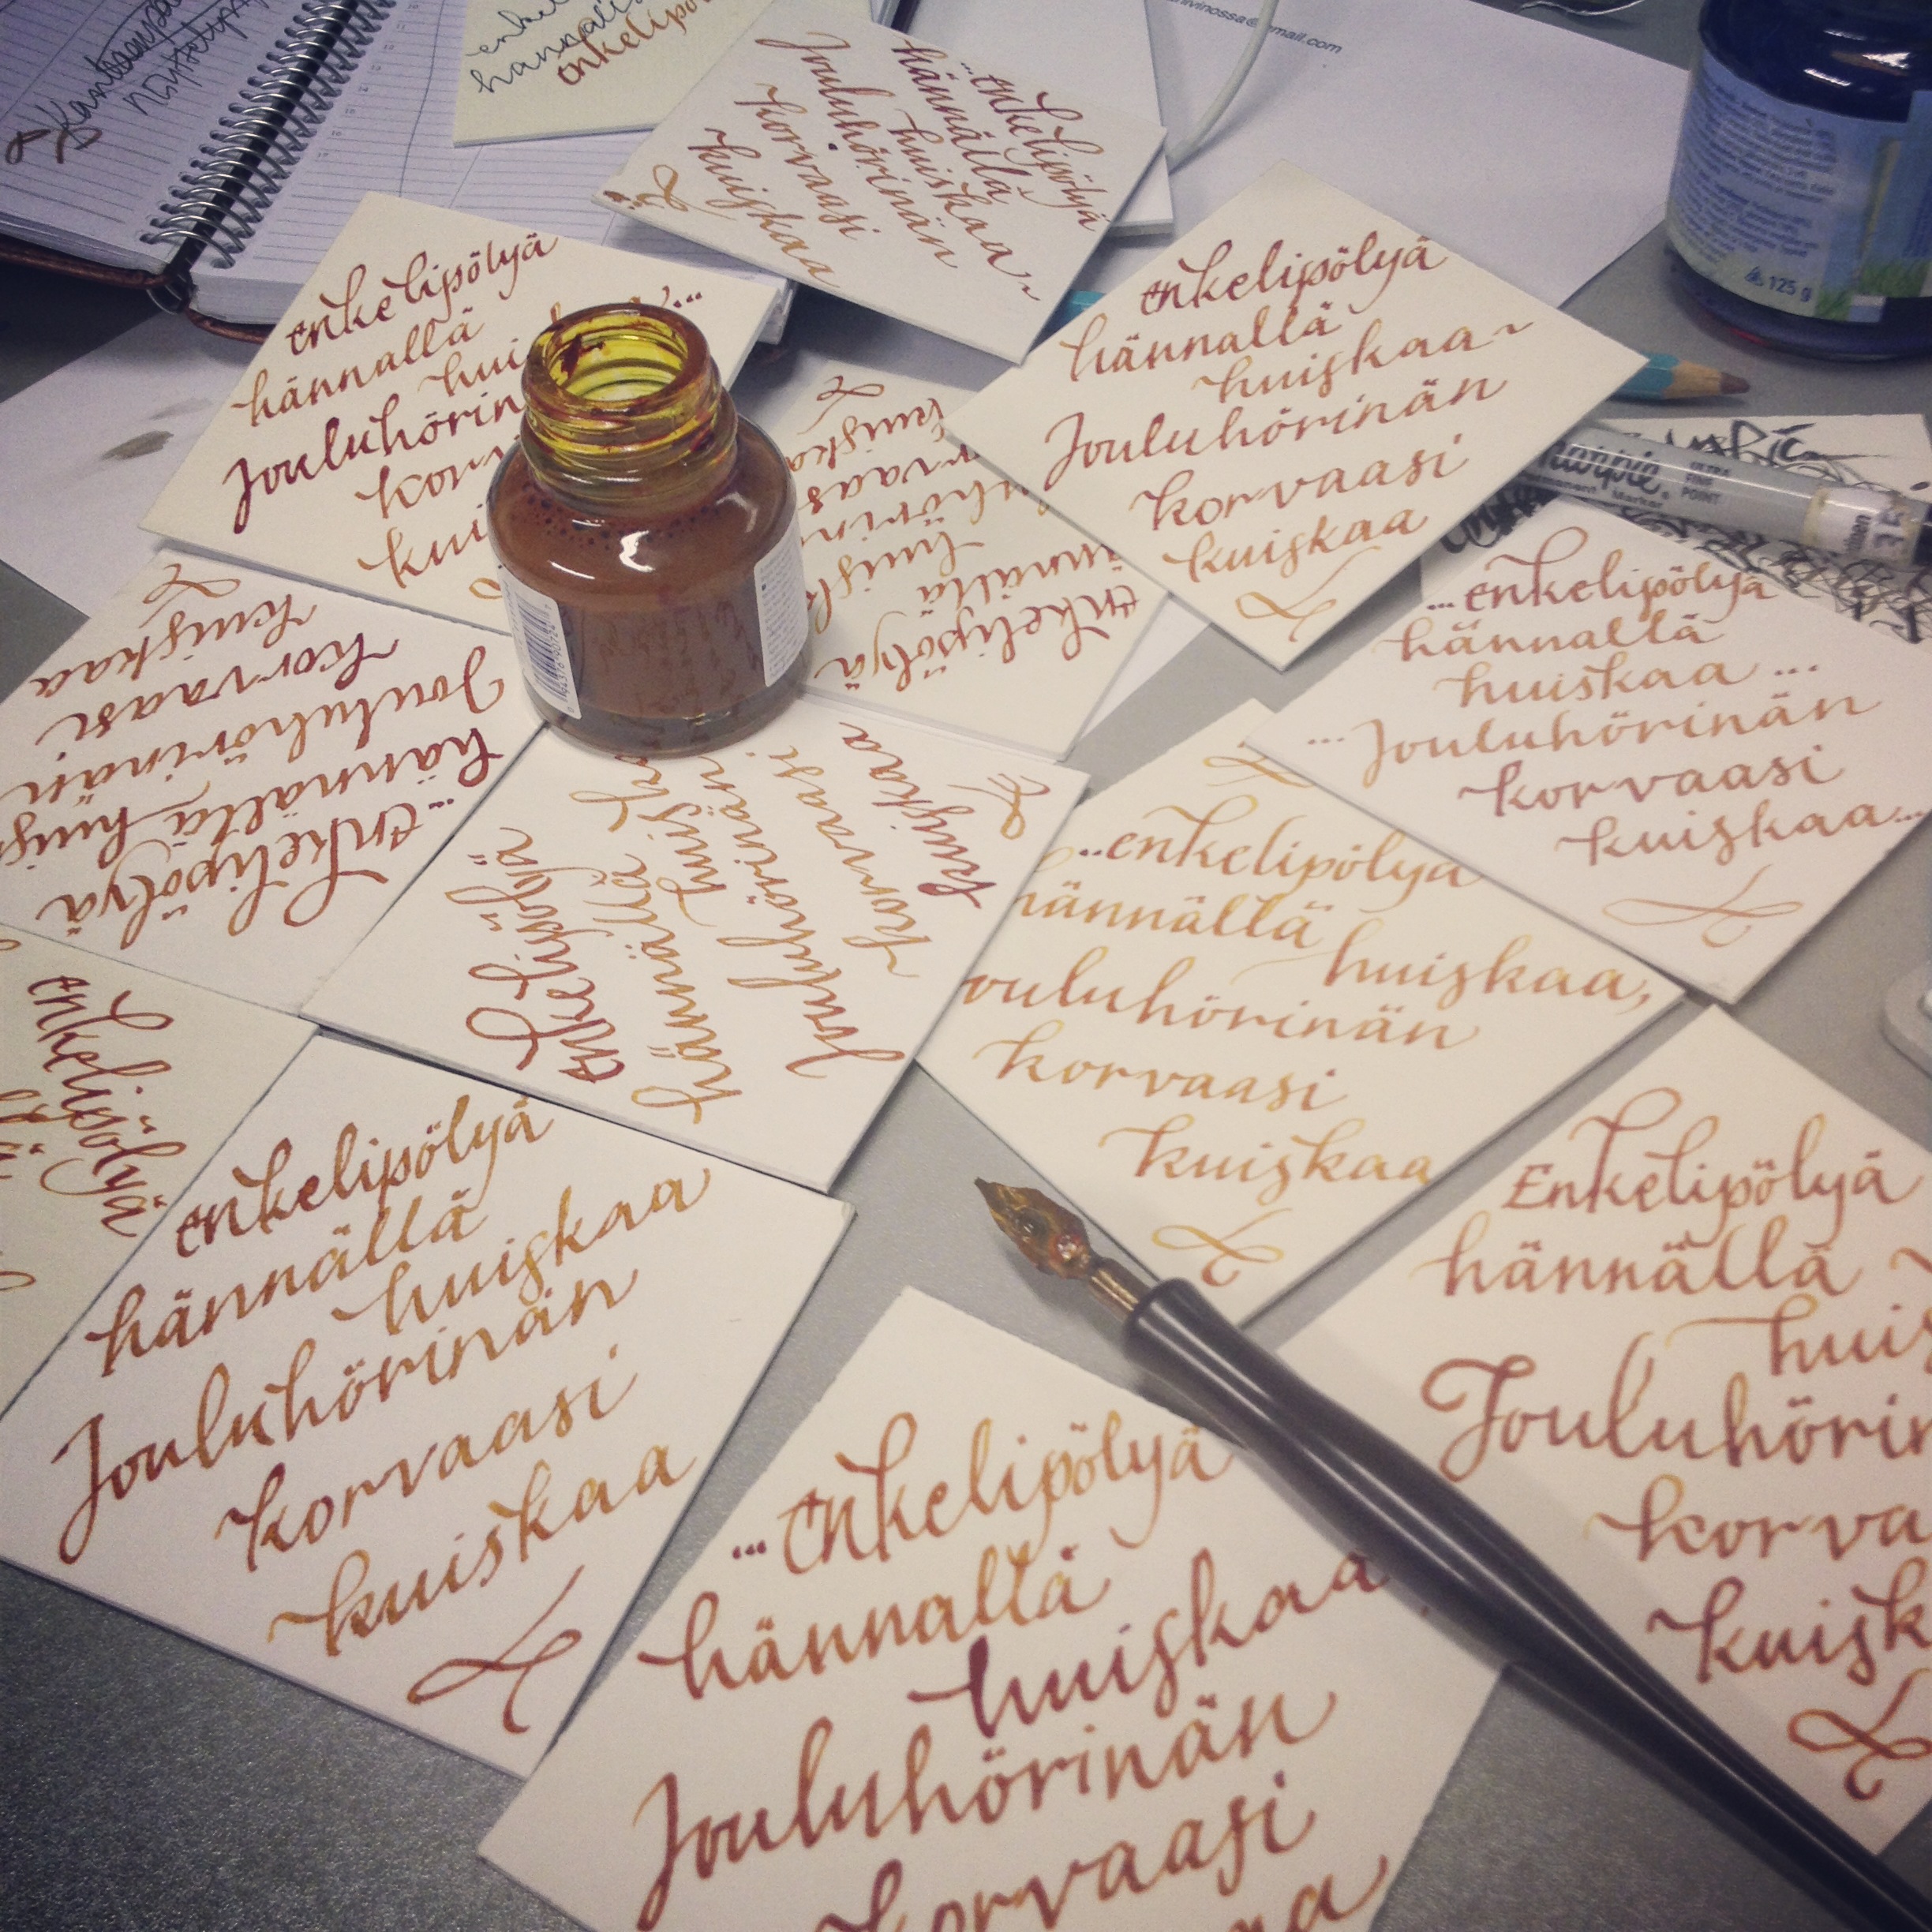 enkelipöl
hännäll
enkelipö
nivinossa@gmail.com
...enkelipölyä
hännällä
huiskaa~
Jouluhörinän
korvaasi
kuiskaa
125 g
enkelipölyä
hännällä
hui
Jouluhörin
kor
kui
enkelipölyä
hännällä
huiskaa~
Jouluhörinän
korvaasi
kuiskaa
Sharpie
ULTRA
FINE
POINT
Permanent Marker
enkelipölyä
ännällä
huisk
uhörin
rvaas
kuiska
...enkelipölyä
hännällä
huiskaa ...
...Jouluhörinän
korvaasi
kuiskaa...
...enkelipölyä
hännällä huis
Jouluhörinän
korvaasi
kuiskaa
enkelipölyä
hännällä huisk
Jouluhörinän
korvaasi
kuiskaa
...enkelipölyä
hännällä
huiskaa,
ouluhörinän
korvaasi
kuiskaa
enkelipölyä
enkelipölyä
hännällä
huiskaa
Jouluhörinän
korvaasi
kuiskaa
Enkelipölyä
hännällä
huis
Jouluhörin
korva
kuisk
...enkelipölyä
hännällä
huiskaa
Jouluhörinän
korvaasi
aa